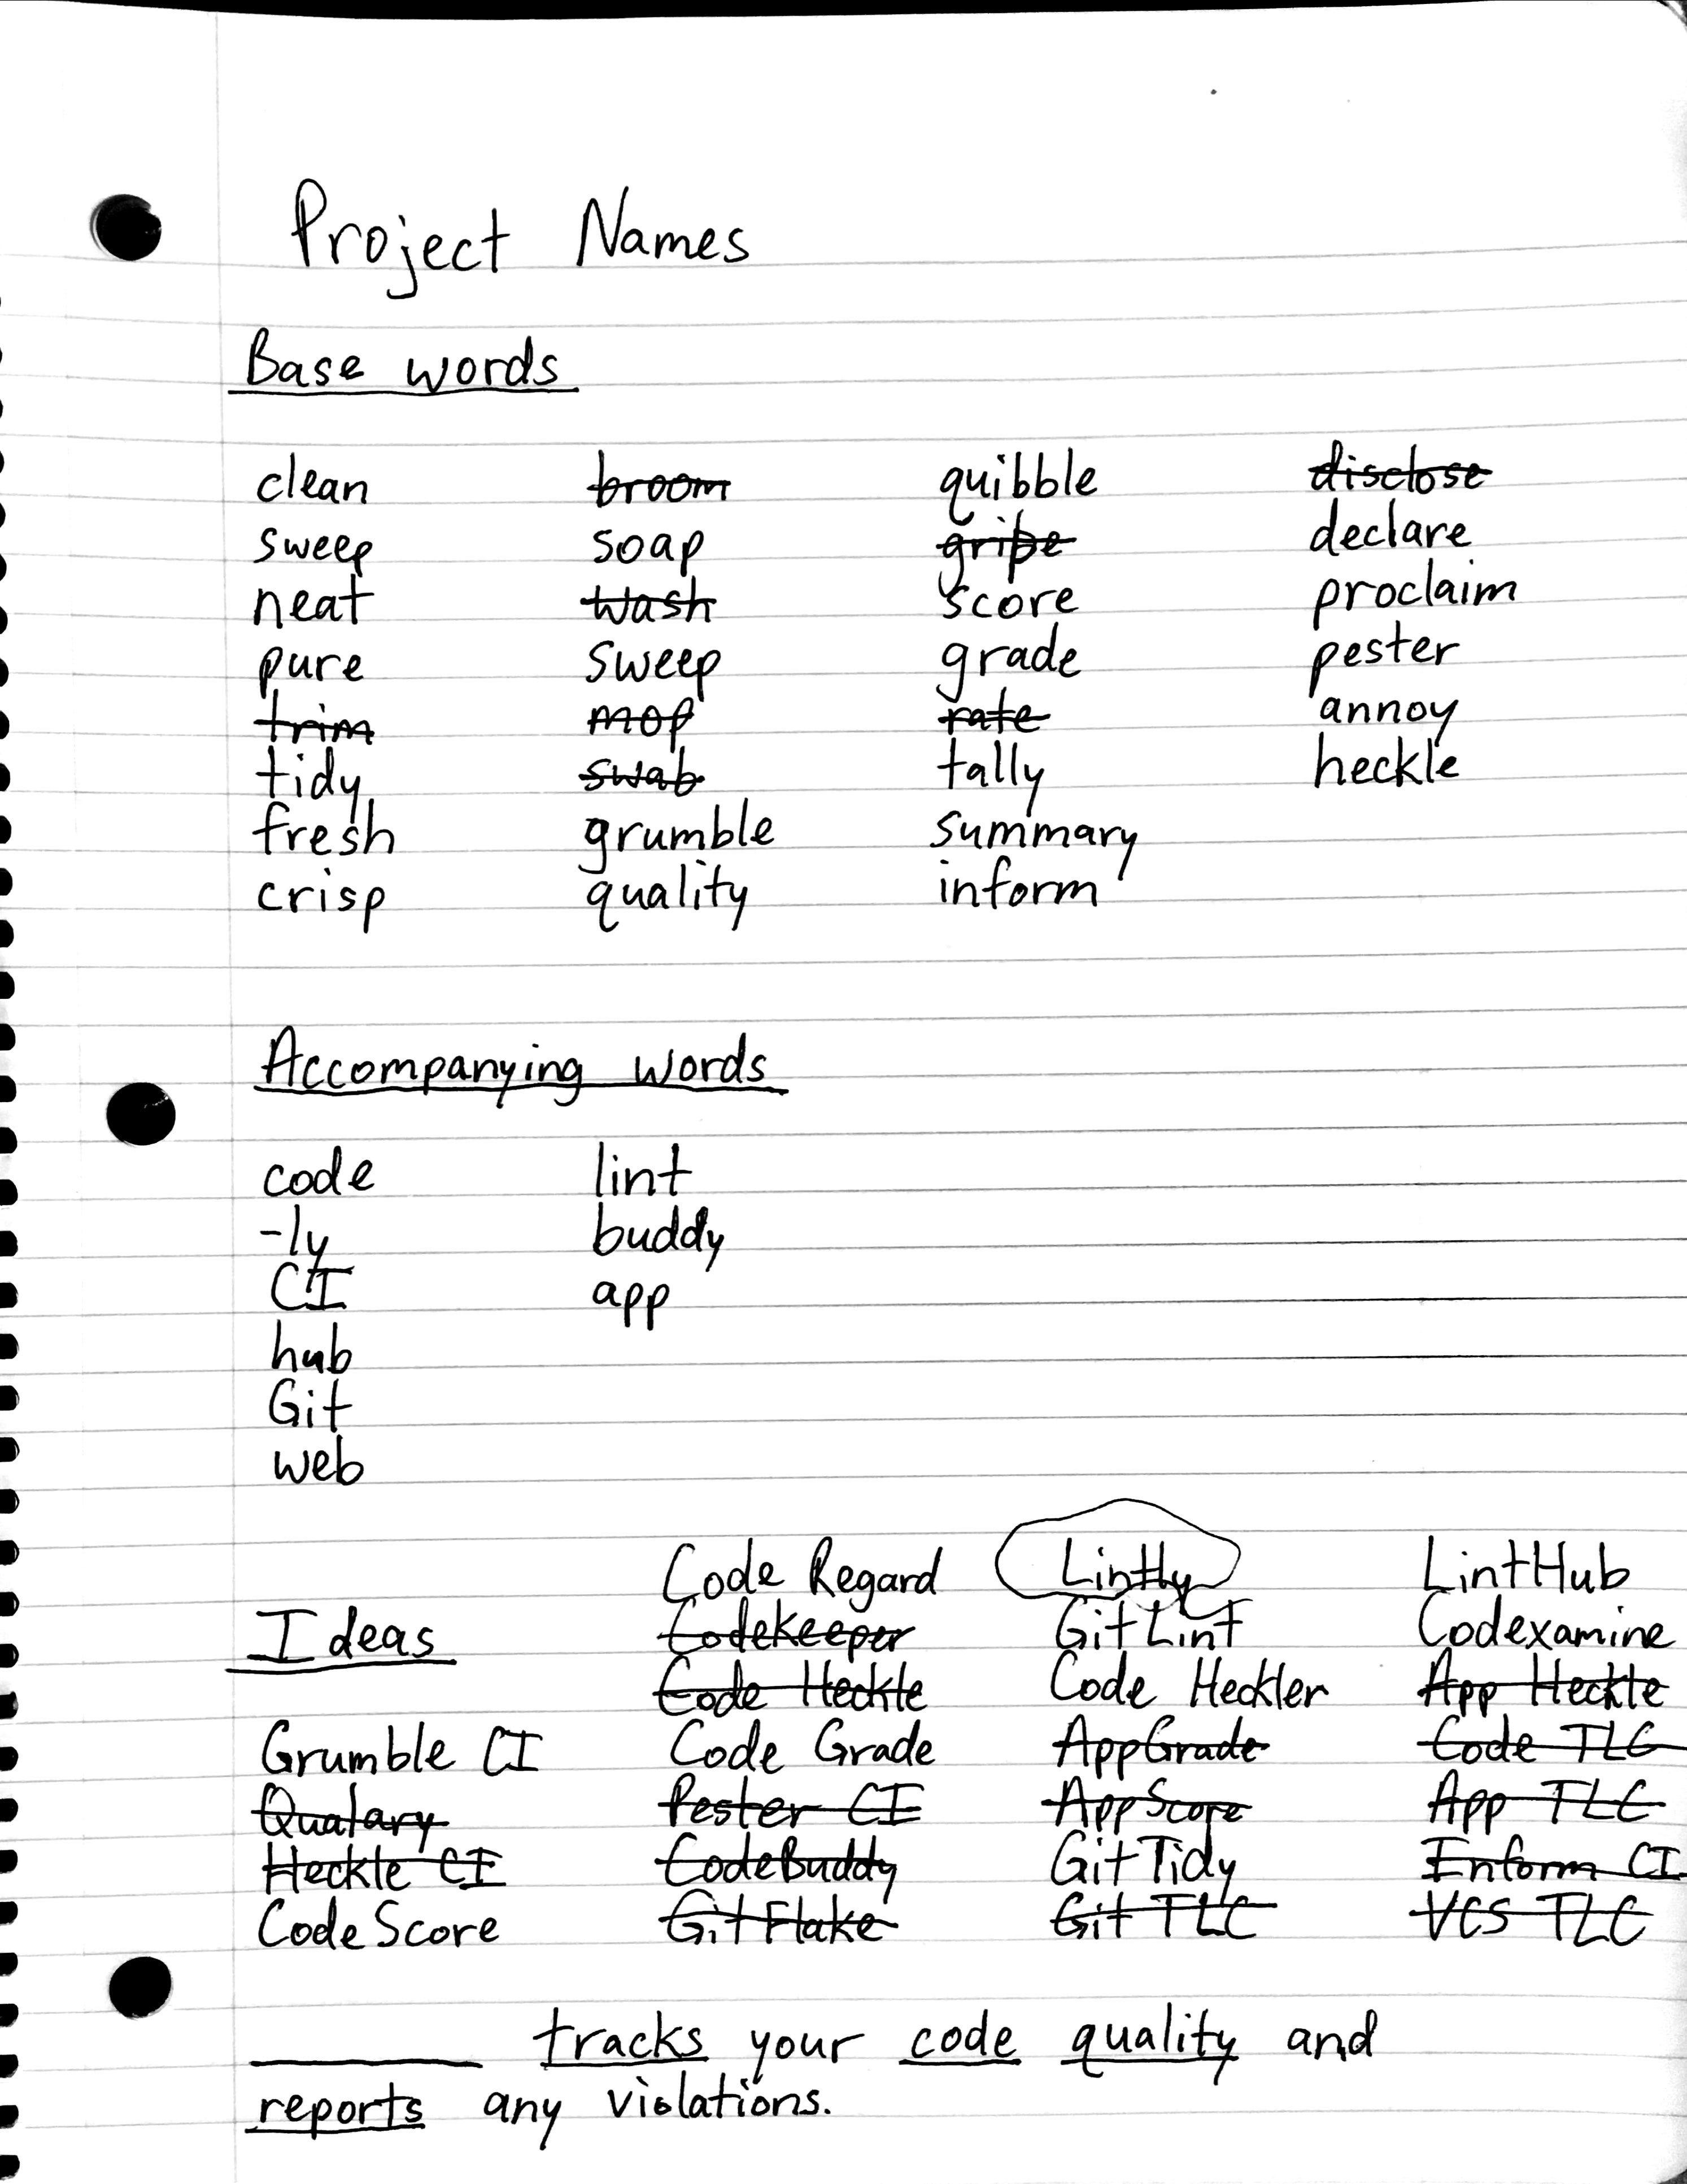 Project Names
Base words
clean broom quibble disclose
sweep soap gripe declare
neat wash score proclaim
pure sweep grade pester
trim mop rate annoy
tidy swab tally heckle
fresh grumble summary
crisp quality inform
Accompanying words
code lint
-ly buddy
CI app
hub
Git
web
Code Regard Lintly LintHub
Ideas Codekeeper GitLint Codexamine
Code Heckle Code Heckler App Heckle
Grumble CI Code Grade AppGrade Code TLC
Qualary Pester CI AppScore App TLC
Heckle CI CodeBuddy GitTidy Inform CI
CodeScore GitFlake Git TLC VCS TLC
tracks your code quality and
reports any violations.